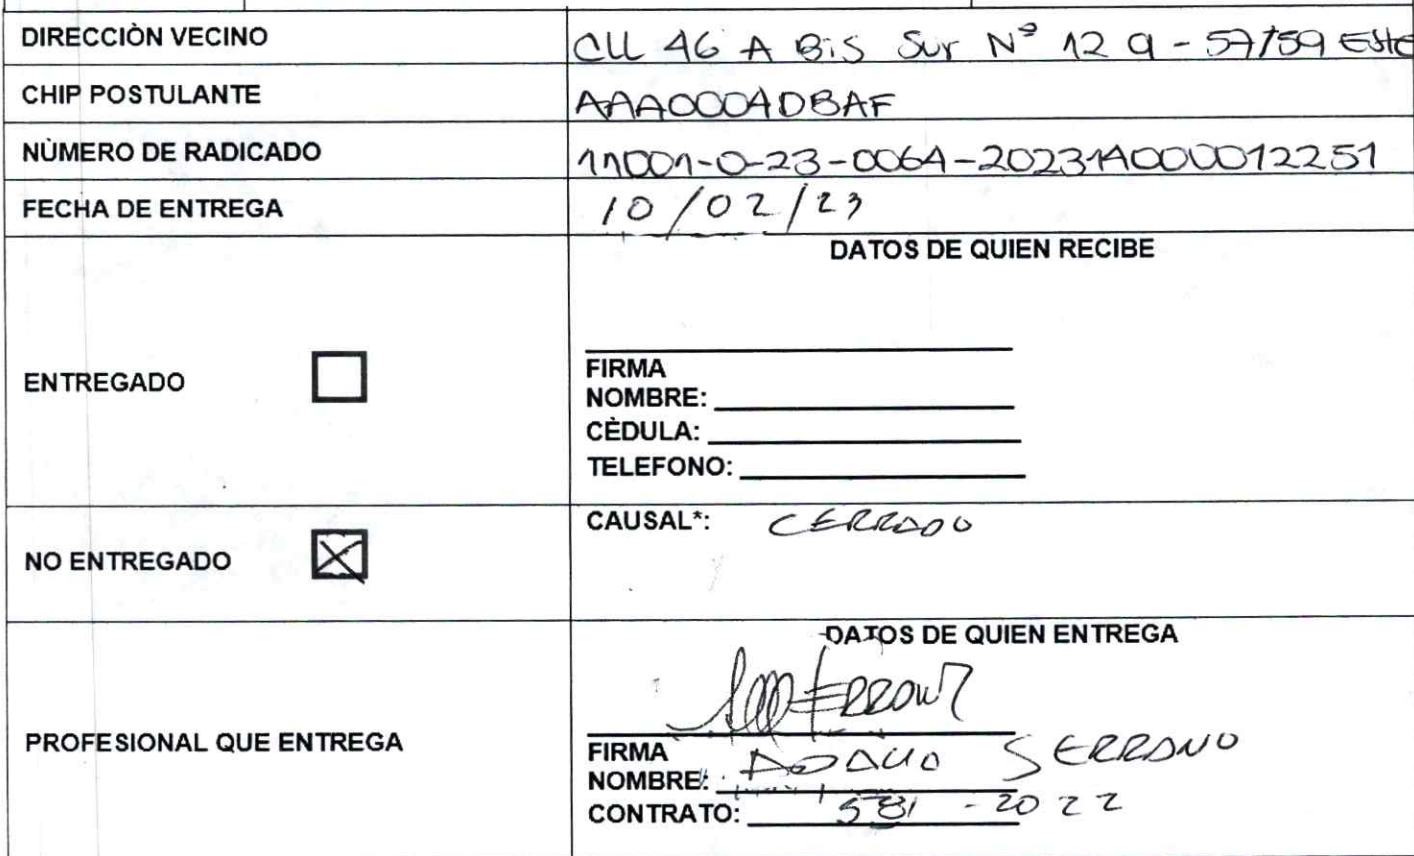 DIRECCIÒN VECINO
CLL 46 A Bis Sur Nº 12 a - 57/59 Este
CHIP POSTULANTE
AAA0004DBAF
NÙMERO DE RADICADO
11001-0-23-0064-20231A000012251
FECHA DE ENTREGA
10/02/23
DATOS DE QUIEN RECIBE
ENTREGADO
FIRMA
NOMBRE:
CÈDULA:
TELEFONO:
NO ENTREGADO
CAUSAL*: CERRADO
DATOS DE QUIEN ENTREGA
PROFESIONAL QUE ENTREGA
FIRMA
NOMBRE: SERRANO
CONTRATO: 581 - 2022